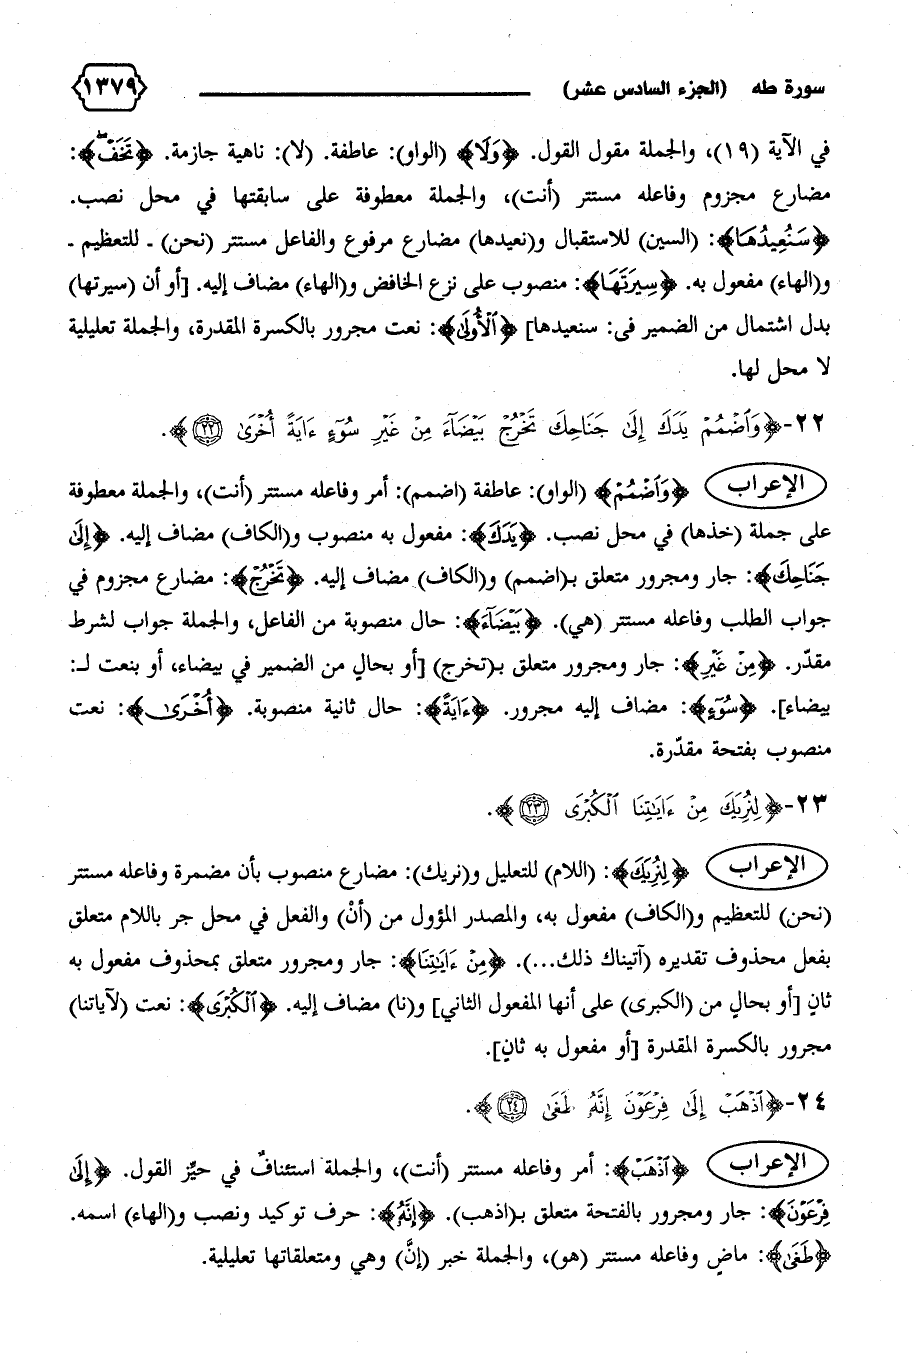 سورة طه (الجزء السادس عشر) ١٣٧٩
في الآية (١٩)، والجملة مقول القول. ﴿وَلَا﴾ (الواو): عاطفة. (لا): ناهية جازمة. ﴿تَخَفْ﴾:
مضارع مجزوم وفاعله مستتر (أنت)، والجملة معطوفة على سابقتها في محل نصب.
﴿سَنُعِيدُهَا﴾: (السين) للاستقبال و(نعيدها) مضارع مرفوع والفاعل مستتر (نحن) ـ للتعظيم ـ
و(الهاء) مفعول به. ﴿سِيرَتَهَا﴾: منصوب على نزع الخافض و(الهاء) مضاف إليه. [أو أن (سيرتها)
بدل اشتمال من الضمير في: سنعيدها] ﴿ٱلْأُولَىٰ﴾: نعت مجرور بالكسرة المقدرة، والجملة تعليلية
لا محل لها.
٢٢-﴿وَٱضْمُمْ يَدَكَ إِلَىٰ جَنَاحِكَ تَخْرُجْ بَيْضَآءَ مِنْ غَيْرِ سُوٓءٍ ءَايَةً أُخْرَىٰ ٢٢﴾.
الإعراب ﴿وَٱضْمُمْ﴾ (الواو): عاطفة (اضمم): أمر وفاعله مستتر (أنت)، والجملة معطوفة
على جملة (خذها) في محل نصب. ﴿يَدَكَ﴾: مفعول به منصوب و(الكاف) مضاف إليه. ﴿إِلَىٰ
جَنَاحِكَ﴾: جار ومجرور متعلق بـ(اضمم) و(الكاف) مضاف إليه. ﴿تَخْرُجْ﴾: مضارع مجزوم في
جواب الطلب وفاعله مستتر (هي). ﴿بَيْضَآءَ﴾: حال منصوبة من الفاعل، والجملة جواب لشرط
مقدّر. ﴿مِنْ غَيْرِ﴾: جار ومجرور متعلق بـ(تخرج) [أو بحال من الضمير في بيضاء، أو بنعت لـ:
بيضاء]. ﴿سُوٓءٍ﴾: مضاف إليه مجرور. ﴿ءَايَةً﴾: حال ثانية منصوبة. ﴿أُخْرَىٰ﴾: نعت
منصوب بفتحة مقدّرة.
٢٣-﴿لِنُرِيَكَ مِنْ ءَايَٰتِنَا ٱلْكُبْرَى ٢٣﴾.
الإعراب ﴿لِنُرِيَكَ﴾: (اللام) للتعليل و(نريك): مضارع منصوب بأن مضمرة وفاعله مستتر
(نحن) للتعظيم و(الكاف) مفعول به، والمصدر المؤول من (أنْ) والفعل في محل جر باللام متعلق
بفعل محذوف تقديره (آتيناك ذلك...). ﴿مِنْ ءَايَٰتِنَا﴾: جار ومجرور متعلق بمحذوف مفعول به
ثانٍ [أو بحال من (الكبرى) على أنها المفعول الثاني] و(نا) مضاف إليه. ﴿ٱلْكُبْرَى﴾: نعت (لآياتنا)
مجرور بالكسرة المقدرة [أو مفعول به ثانٍ].
٢٤-﴿ٱذْهَبْ إِلَىٰ فِرْعَوْنَ إِنَّهُۥ طَغَىٰ ٢٤﴾.
الإعراب ﴿ٱذْهَبْ﴾: أمر وفاعله مستتر (أنت)، والجملة استئنافٌ في حيِّز القول. ﴿إِلَىٰ
فِرْعَوْنَ﴾: جار ومجرور بالفتحة متعلق بـ(اذهب). ﴿إِنَّهُۥ﴾: حرف توكيد ونصب و(الهاء) اسمه.
﴿طَغَىٰ﴾: ماضٍ وفاعله مستتر (هو)، والجملة خبر (إنَّ) وهي ومتعلقاتها تعليلية.